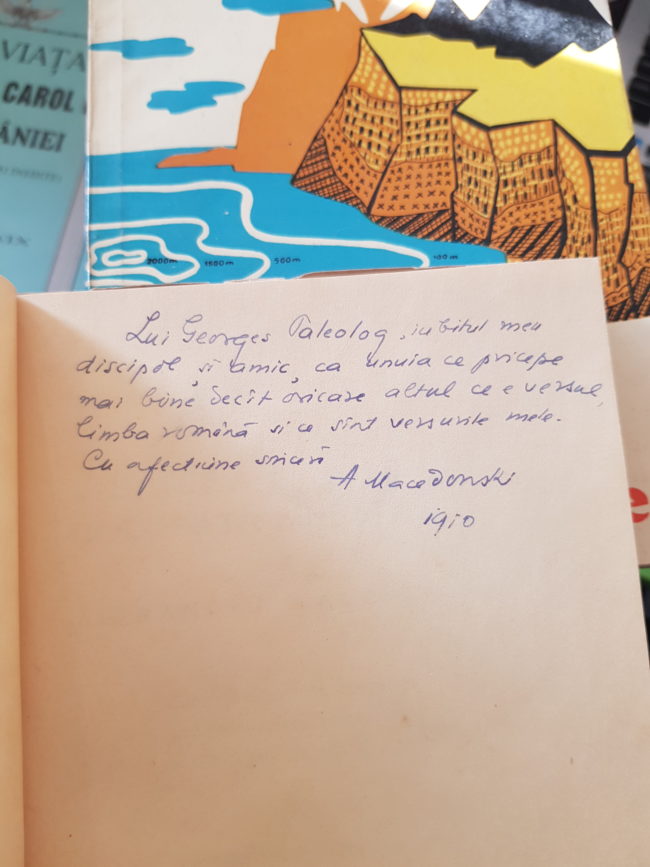 VIAȚA
CAROL
ÂNIEI
2000m 1500m 500m 100m
Lui Georges Paleolog, iubitul meu
discipol și amic, ca unuia ce pricepe
mai bine decît oricare altul ce e versul,
limba română si ce sînt versurile mele.
Cu afecțiune
A Macedonski
1910
e